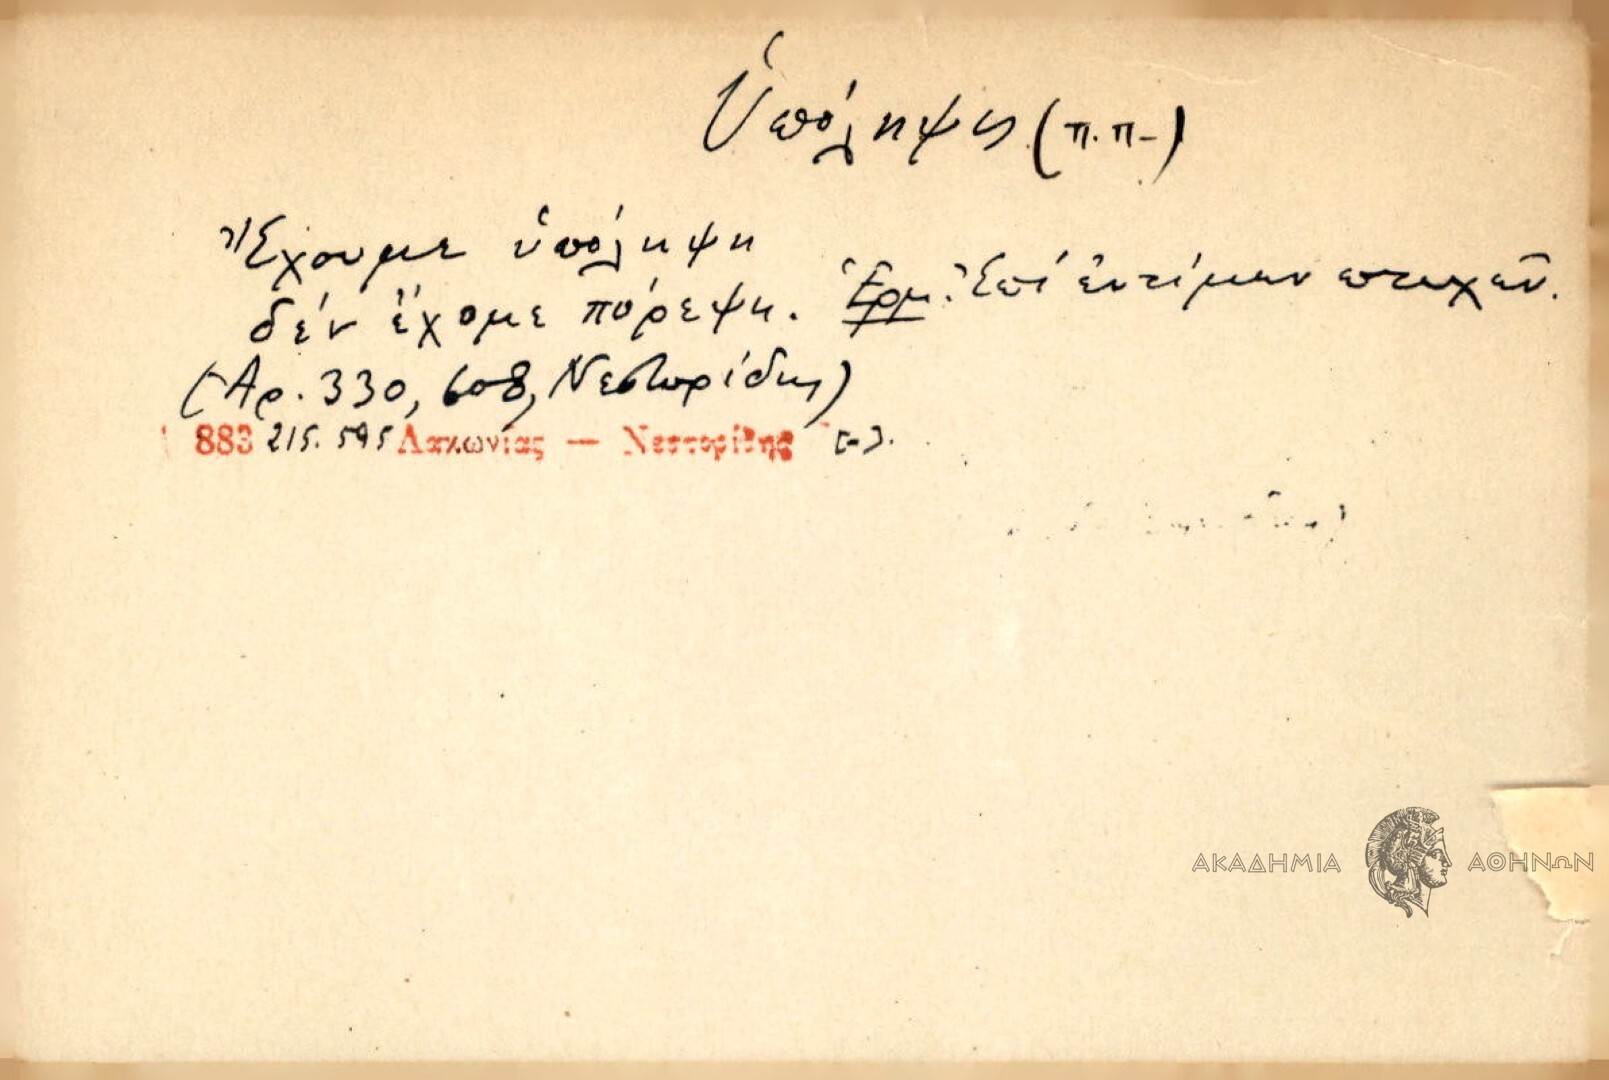 Ὑπόληψις (π.π-)
Ἔχουμε ὑπόληψη
δέν ἔχομε πόρεψη. Ἑρμ. Ἐπί ἐντίμων πτωχῶν.
(Ἀρ. 330, 608, Νεστορίδης)
883 215. 595 Λακωνίας — Νεστορίδης [-].
ΑΚΑΔΗΜΙΑ ΑΘΗΝΩΝ